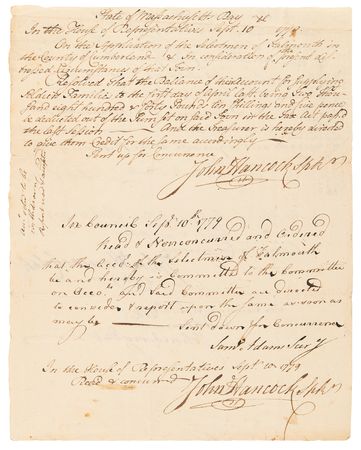 State of Massachusetts Bay &c
In the House of Representatives Sept. 10 1779
On the Application of the Selectmen of Falmouth in
the County of Cumberland & in consideration of present dis
tressed circumstances of that Town
Resolved that the Ballance of their account for supplying
Soldiers Families to the first day of April last being Five thou
sand eight hundred & forty Pounds ten shillings and five pence
be deducted out of the Sum set on said Town in the Tax Act pass'd
the last session And the Treasurer is hereby directed
to give them Credit for the same accordingly
Sent up for Concurrence
John Hancock Spkr
In Council Sept. 10th 1779
Read & Nonconcurred and Ordered
that the Acct of the Selectmen of Falmouth
be and hereby is Committed to the Committee
on Accots. And said Committee are directed
to consider & report upon the same as soon as
may be Sent down for Concurrence
Saml Adams Secy
In the House of Representatives Sept. 10 1779
Read & concurred
John Hancock Spkr